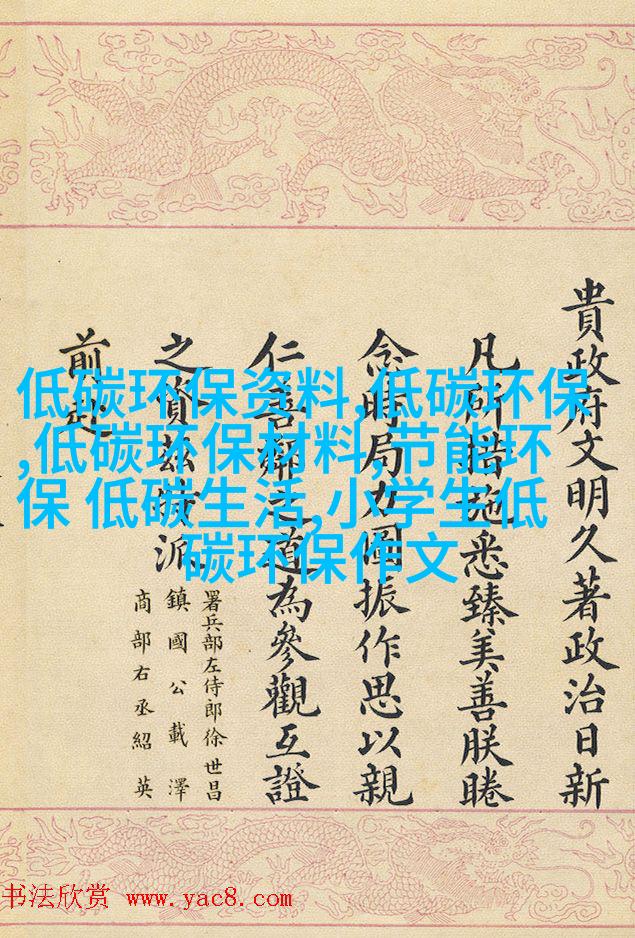 貴政府文明久著政治日新
凡所措施悉臻美善朕睠
念時局力圖振作思以親
仁善鄰之道為參觀互證
之資茲特派
署兵部左侍郎徐世昌
鎮國公載澤
商部右丞紹英
前赴
低碳环保资料,低碳环保
,低碳环保材料,节能环
保 低碳生活,小学生低
碳环保作文
书法欣赏 www.yac8.com